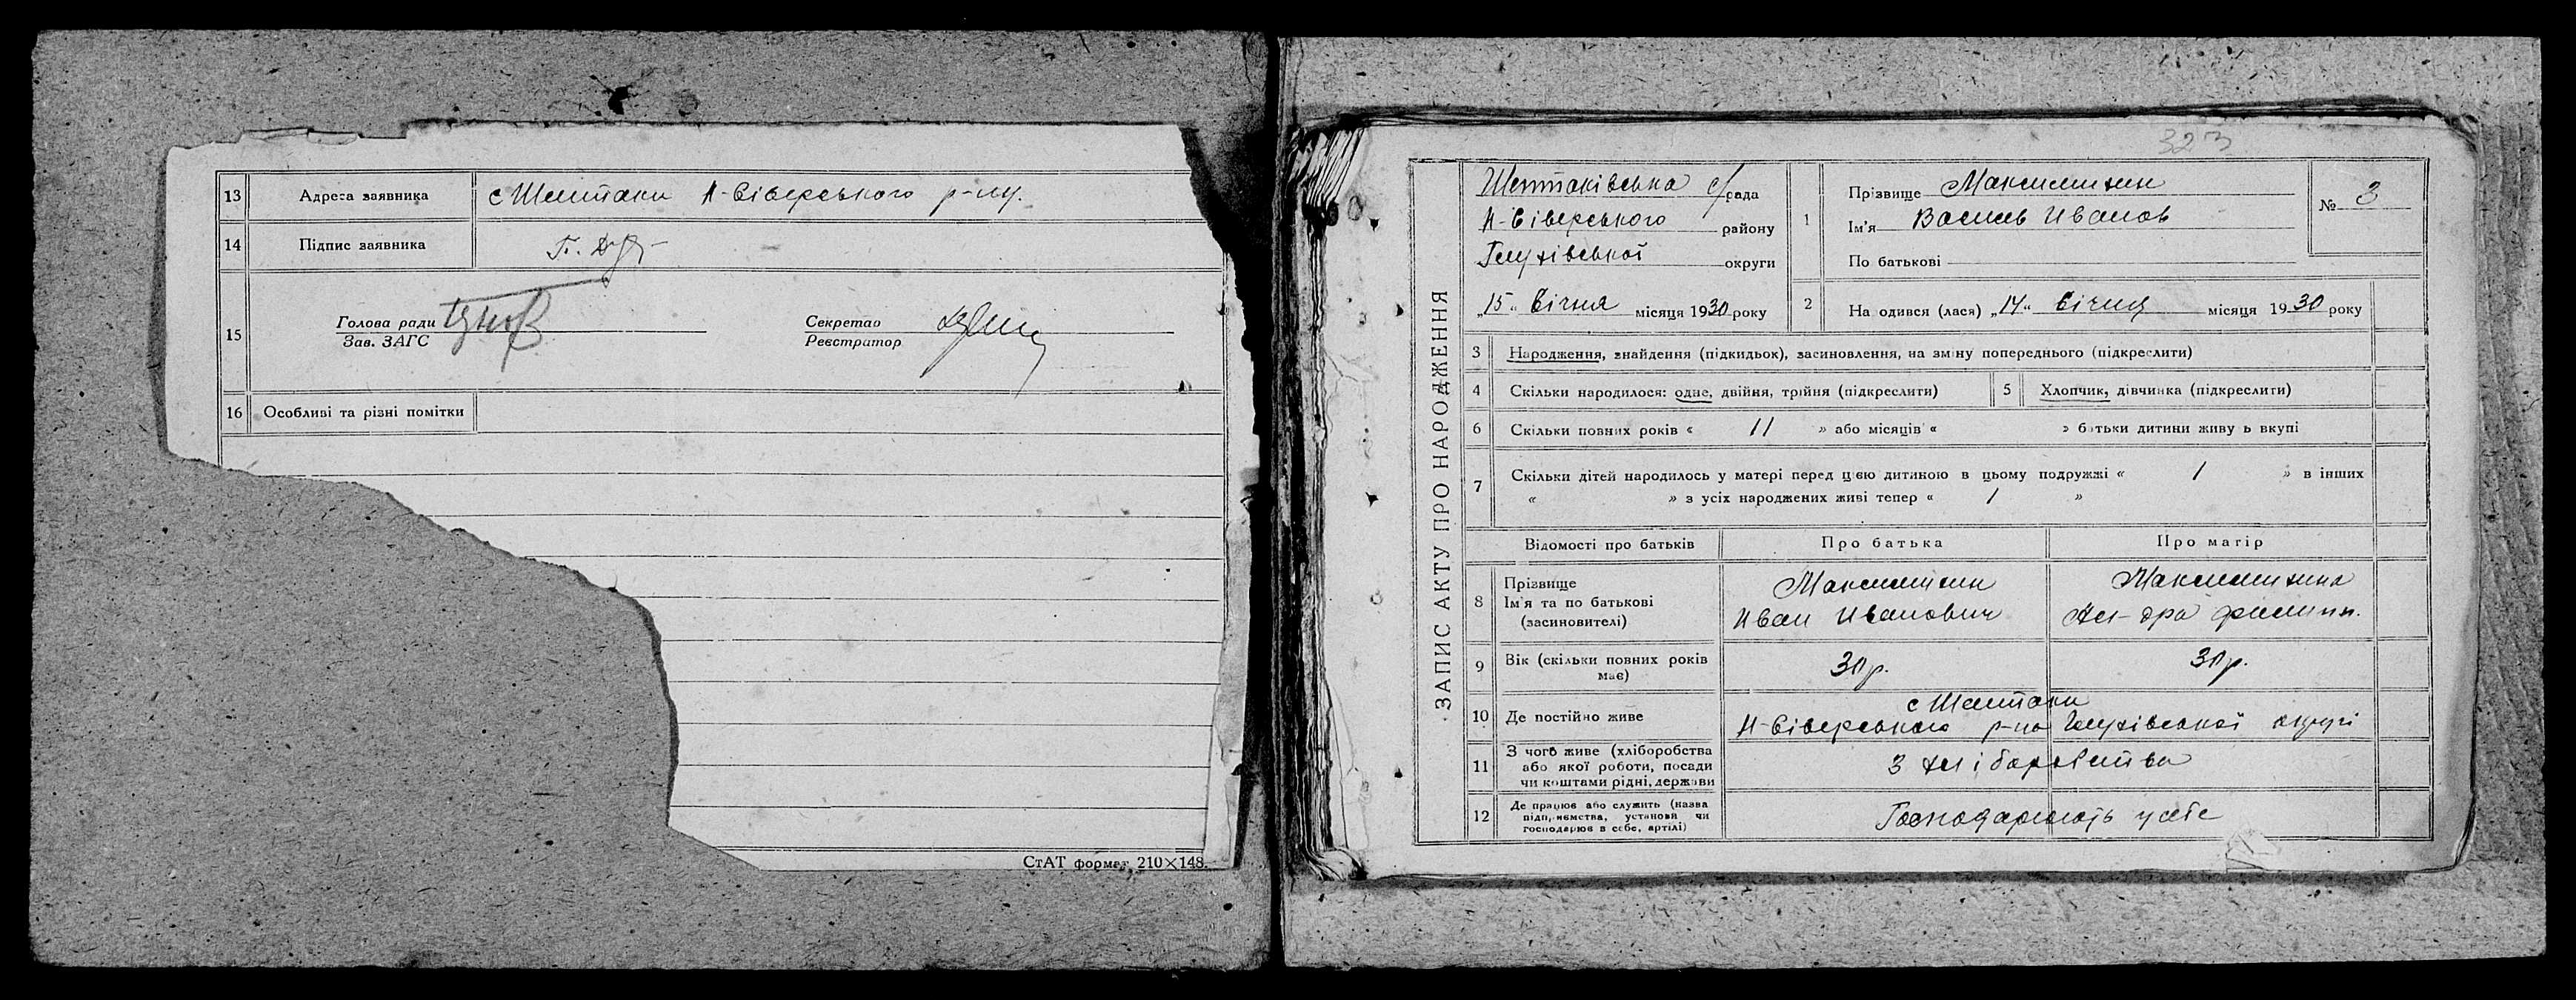 13 Адреса заявника с Шептаки Н-Сіверського р-ну.
14 Підпис заявника
15 Голова ради Секретар
Зав. ЗАГС Реєстратор
16 Особливі та різні помітки
СтАТ формат 210×148.
323
ЗАПИС АКТУ ПРО НАРОДЖЕННЯ
Шептаківська с/рада
Н-Сіверського району
Глухівської округи
„15“ Січня місяця 1930 року
1 Прізвище Максимихин
Ім'я Василь Иванов
По батькові
№ 3
2 На одився (лася) „14“ Січня місяця 1930 року
3 Народження, знайдення (підкидьок), засиновлення, на зміну попереднього (підкреслити)
4 Скільки народилося: одне, двійня, трійня (підкреслити) 5 Хлопчик, дівчинка (підкреслити)
6 Скільки повних років « 11 » або місяців « » батьки дитини живуть вкупі
7 Скільки дітей народилось у матері перед цією дитиною в цьому подружжі « 1 » в інших
« » з усіх народжених живі тепер « 1 »
Відомості про батьків Про батька Про матір
8 Прізвище Максимихин Максимихина
Ім'я та по батькові Иван Иванович Ал-дра Филипп.
(засиновителі)
9 Вік (скільки повних років має) 30р. 30р.
10 Де постійно живе с Шептаки
Н-Сіверського р-но Глухівської округи
11 З чого живе (хліборобства З хліборобства
або якої роботи, посади
чи коштами рідні, держави
12 Де працює або служить (назва Господарюють у себе
підприємства, установи чи
господарює в себе, артілі)